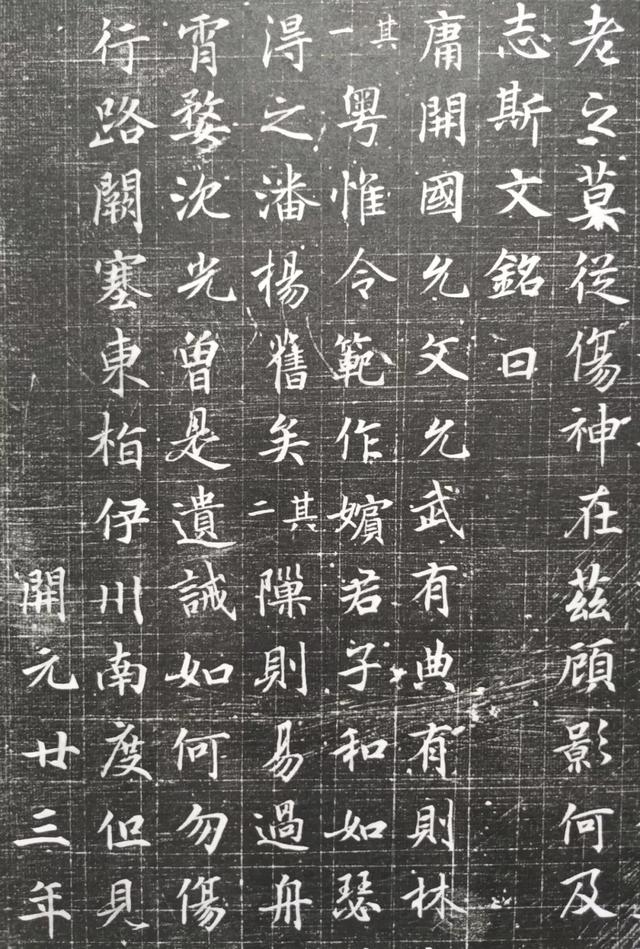 老之莫從傷神在茲顧影何及
志斯文銘曰
庸開國允文允武有典有則林
其一粤惟令範作嬪君子和如瑟
淂之潘楊舊矣其二隟則易過舟
宵婺沈光曾是遺誡如何勿傷
行路闕塞東栢伊川南度但見
開元廿三年